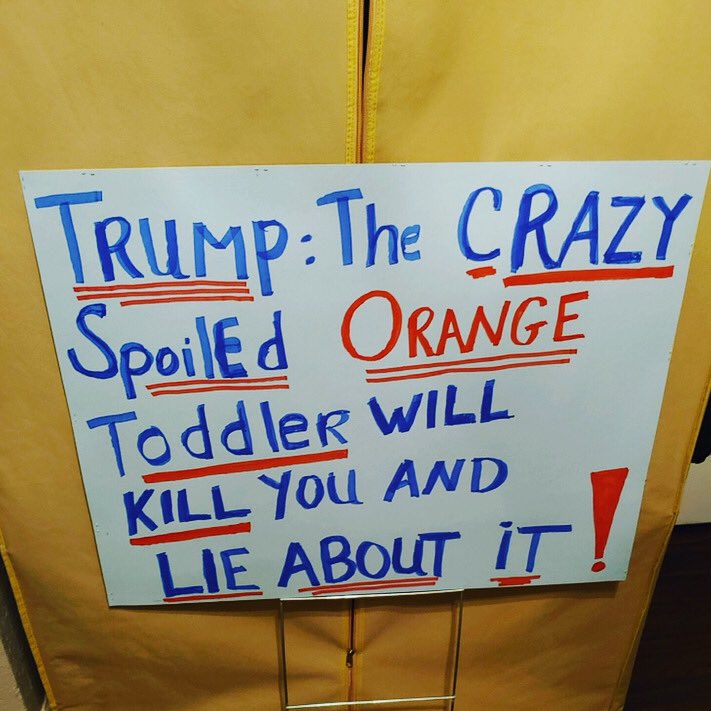 TRUMP: The CRAZY
SpoilEd ORANGE
ToddlER WILL
KILL YOU AND
LIE ABOUT iT!